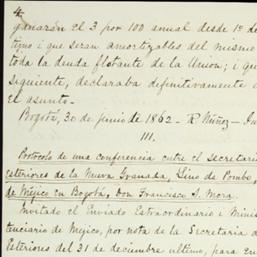 4
ganarán el 3 por 100 anual desde 1º de
tizno i que seran amortizables del mismo
toda la deuda flotante de la Union; i qu
siguiente, declaraba definitivamente
el asunto.-
Bogotá, 30 de junio de 1862 - R Núñez -
III.
Protocolo de una conferencia entre el Secretari
esteriores de la Nueva Granada, Lino de Pombo,
de Méjico en Bogotá, Don Francisco S. Mora.
Invitado el Enviado Extraordinario i Minis
tenciario de Méjico, por nota de la Secretaria d
Esteriores del 31 de diciembre ultimo, para en